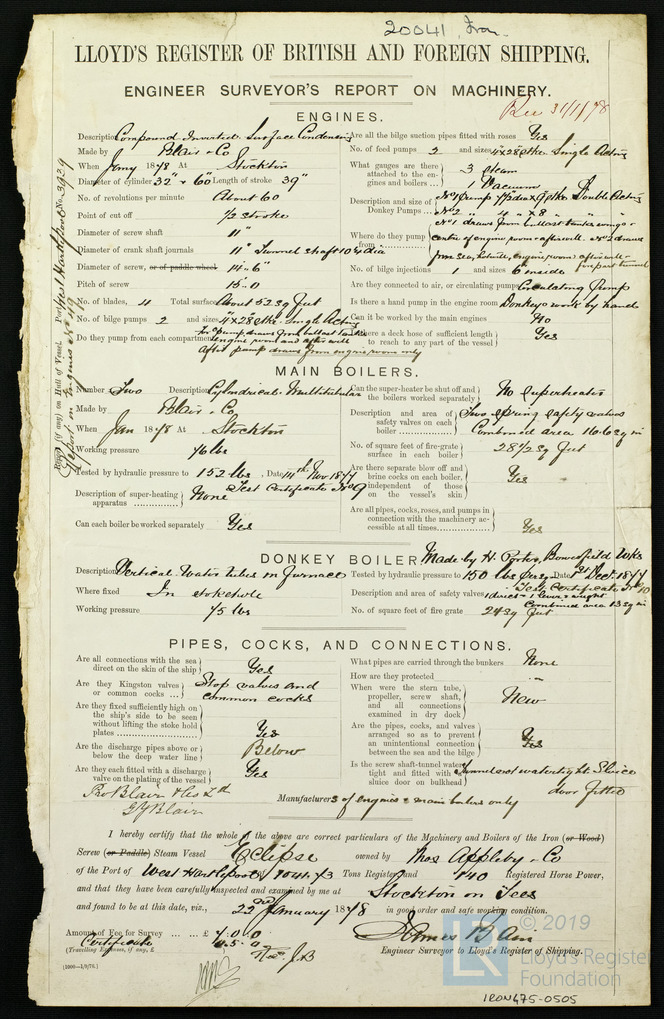 20041 Iron
LLOYD'S REGISTER OF BRITISH AND FOREIGN SHIPPING.
ENGINEER SURVEYOR'S REPORT ON MACHINERY.
Rec 31/1/78
ENGINES.
Description Compound Inverted. Surface Condensing
Made by Blair & Co
When Jany 1878 At Stockton
Diameter of cylinder 32" & 60" Length of stroke 39"
No. of revolutions per minute About 60
Point of cut off 1/2 stroke
Diameter of screw shaft 11"
Diameter of crank shaft journals 11" Tunnel shaft 10 1/4 dia
Diameter of screw, or of paddle wheel 14'-6"
Pitch of screw 15'-0
No. of blades, 4 Total surface About 52 sq feet
No. of bilge pumps 2 and sizes 4"x28" stke. Single Acting
Do they pump from each compartment
pump draws from ballast tanks
engine room and after well
After pump draws from engine room only
Are all the bilge suction pipes fitted with roses Yes
No. of feed pumps 2 and sizes 4"x28" stke Single Acting
What gauges are there attached to the engines and boilers ... 3 steam
1 Vacuum
Description and size of Donkey Pumps ... No 1 Pump 9" stke Double Acting
No 2 " 4" x 8" " "
Where do they pump from
No 1 draws from ballast tanks wings &
centre of engine room & after well. No 2 draws
from sea, hotwell, engine room, after well &
fore part tunnel
No. of bilge injections 1 and sizes 6" inside
Are they connected to air, or circulating pump Circulating Pump
Is there a hand pump in the engine room Donkeys work by hand
Can it be worked by the main engines No
Is there a deck hose of sufficient length to reach to any part of the vessel Yes
Report (if any) on Hull of Vessel. Port West Hartlepool No. 3929
Report on Engines No 49
MAIN BOILERS.
Number Two Description Cylindrical. Multitubular
Made by Blair & Co
When Jan 1878 At Stockton
Working pressure 76 lbs
Tested by hydraulic pressure to 152 lbs, Date 14th Nov 1877
Test Certificate No 9
Description of super-heating apparatus None
Can each boiler be worked separately Yes
Can the super-heater be shut off and the boilers worked separately No Superheater
Description and area of safety valves on each boiler Two spring safety valves
Combined area 16.6 sq in
No. of square feet of fire-grate surface in each boiler 28 1/2 sq feet
Are there separate blow off and brine cocks on each boiler, independent of those on the vessel's skin Yes
Are all pipes, cocks, roses, and pumps in connection with the machinery accessible at all times Yes
DONKEY BOILER Made by H. Porter, Bowesfield Wks
Description Vertical. Water tubes in furnace
Where fixed In stokehole
Working pressure 75 lbs
Tested by hydraulic pressure to 150 lbs Date Dec. 1877
Test Certificate No 10
Description and area of safety valves 1 direct & 1 lever & weight
Combined area 13 sq in
No. of square feet of fire grate 24 sq feet
PIPES, COCKS, AND CONNECTIONS.
Are all connections with the sea direct on the skin of the ship Yes
Are they Kingston valves or common cocks ... Stop valves and common cocks
Are they fixed sufficiently high on the ship's side to be seen without lifting the stoke hold plates Yes
Are the discharge pipes above or below the deep water line Below
Are they each fitted with a discharge valve on the plating of the vessel Yes
What pipes are carried through the bunkers None
How are they protected "
When were the stern tube, propeller, screw shaft, and all connections examined in dry dock New
Are the pipes, cocks, and valves arranged so as to prevent an unintentional connection between the sea and the bilge Yes
Is the screw shaft-tunnel water-tight and fitted with a sluice door on bulkhead Tunnel watertight. Sluice
door fitted
Pro Blair & Co Ltd
G Y Blair Manufacturers of engines & main boilers only
I hereby certify that the whole of the above are correct particulars of the Machinery and Boilers of the Iron (or Wood)
Screw (or Paddle) Steam Vessel Eclipse owned by Thos Appleby & Co
of the Port of West Hartlepool 1041.73 Tons Register, and 140 Registered Horse Power,
and that they have been carefully inspected and examined by me at Stockton on Tees
and found to be at this date, viz., 22nd January 1878 in good order and safe working condition.
Amount of Fee for Survey ... £ 7.0.0
Certificate 0.5.0
(Travelling Expenses, if any, £
J.B
James Bain
Engineer Surveyor to Lloyd's Register of Shipping.
[1000-1/9/76.]
© 2019
LR
Lloyd's Register
Foundation
IRON475-0505